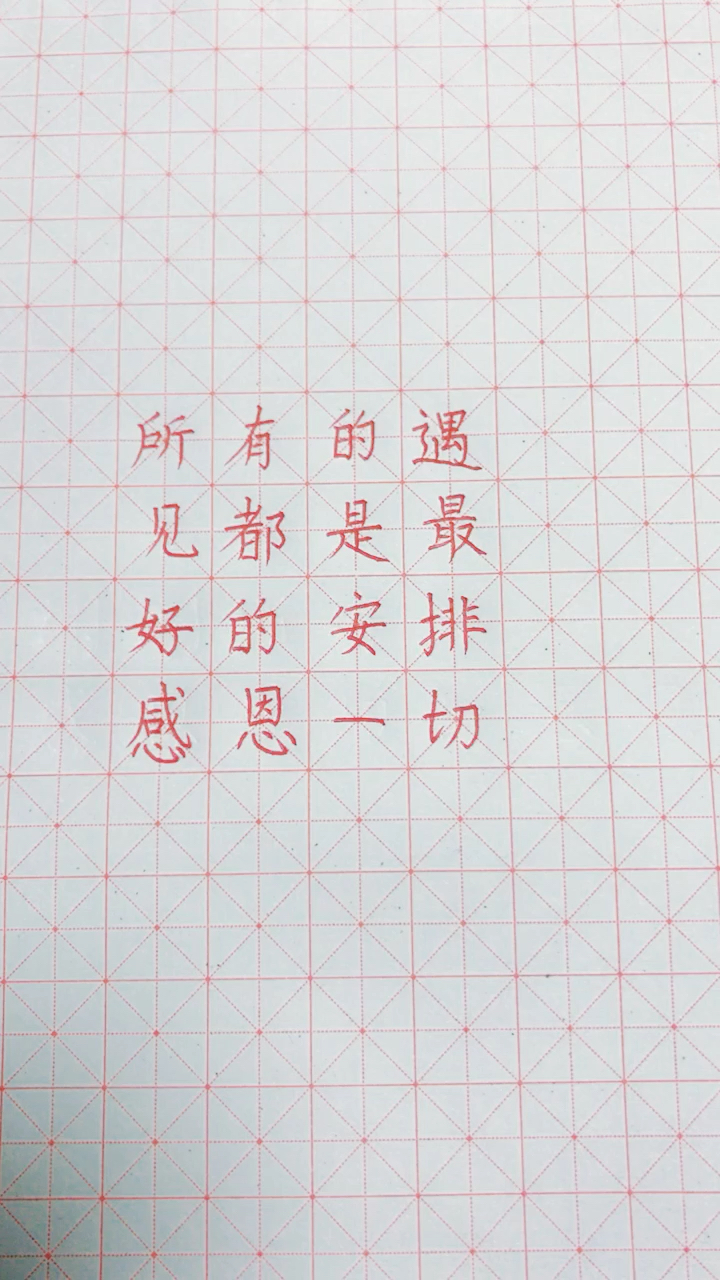 所有的遇
见都是最
好的安排
感恩一切